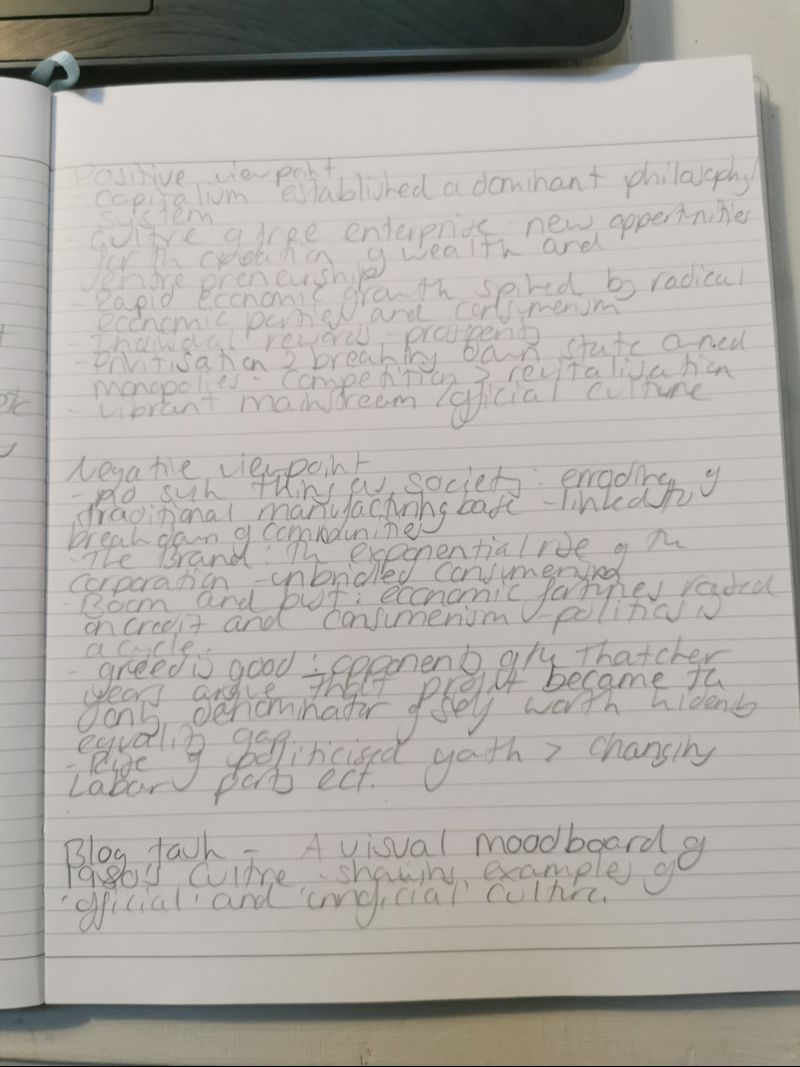 Positive viewpoint
- capitalium established a dominant philosophy/
system
- culture of free enterprise - new oppertnities
for th creation of wealth and
entrepreneurship
- Rapid economic growth spired by radical
economic parties and consumerism
Individual rewards - prosperity
- Privitisation > breaking down state owned
monopolies - competition > revitalisation
- vibrant mainstream /official culture
Negative viewpoint
- No such thing as society : erroding of
traditional manufacturing base - linked to
breakdown of communities
- The Brand : Th exponential rise of the
corporation - unbridled consumerism
- Boom and bust : economic fortunes rooted
on credit and consumerism - politics is
a cycle.
- greed is good : opponents of the Thatcher
years argue that profit became the
only denominator of self worth widening
equality gap
- Rise of politicised youth > changing
Labour party ect.
Blog task - A visual moodboard of
1980's culture - showing examples of
'official' and 'unofficial' culture.